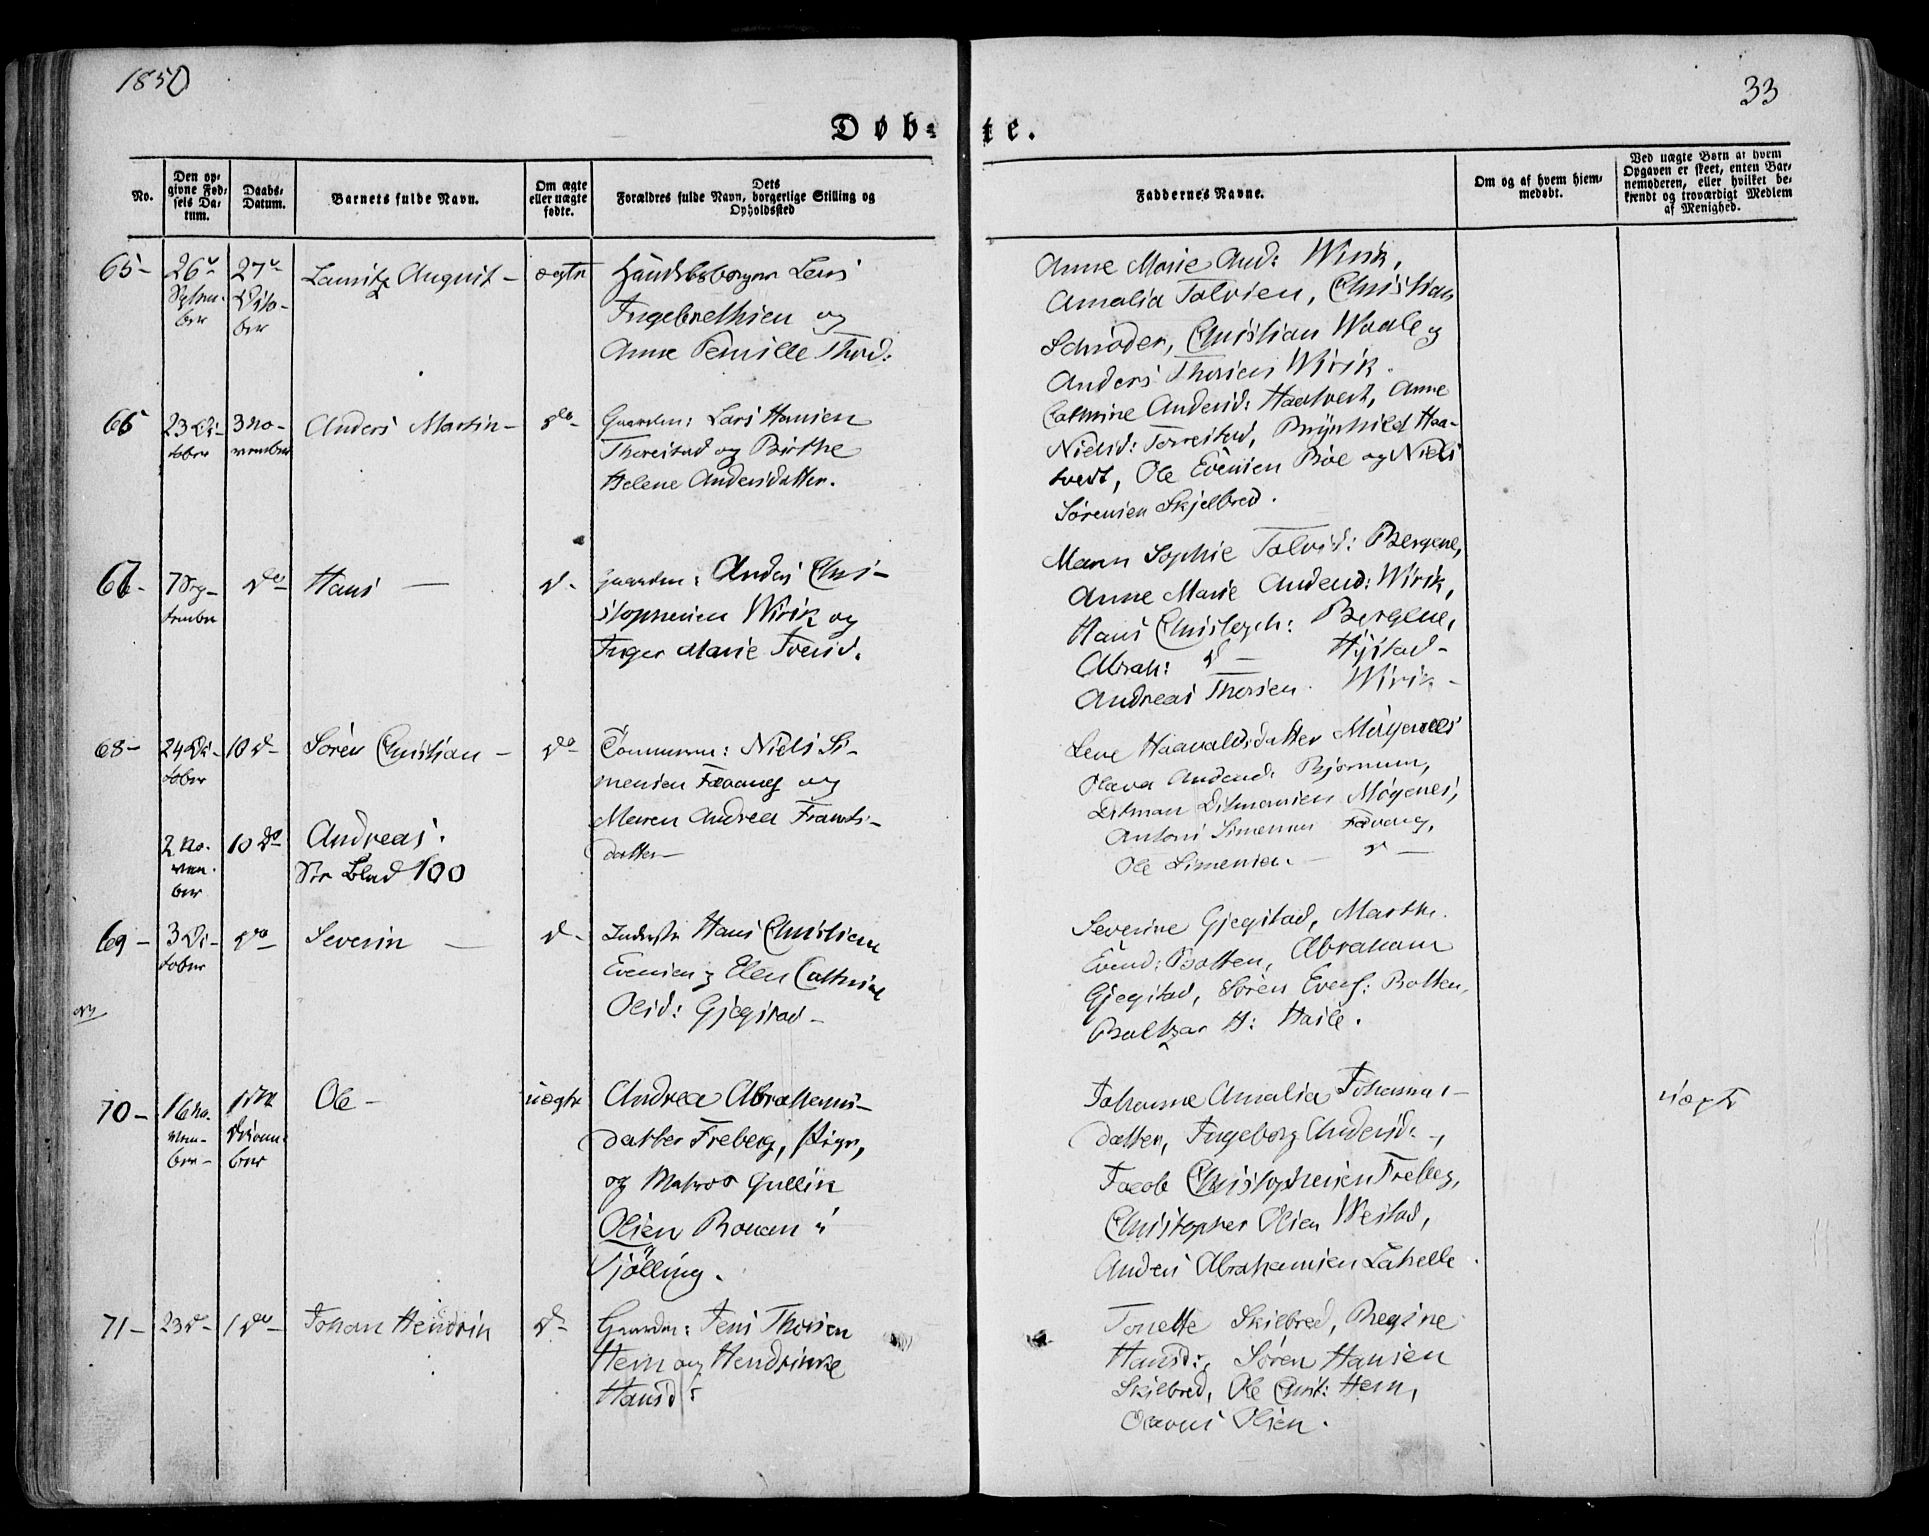 1850
33
Døb-te.
No.
Den op-
givne Fød-
sels Da-
tum.
Daabs-
Datum.
Barnets fulde Navn.
Om ægte
eller uægte
fødte.
Dets
Forældres fulde Navn, borgerlige Stilling og
Opholdssted
Faddernes Navne.
Om og af hvem hjem-
medøbt.
Ved uægte Børn at hvem
Opgaven er skeet, enten Bar-
nemoderen, eller hvilket be-
kjendt og troværdigt Medlem
af Menighed.
65-
26
Septem-
ber
27
Octo-
ber
Lauritz August -
ægte
Lars
Ingebrethsen og
Anne Pernille Thord:
Anne Marie And: Wirik,
Amalia Tolvsen, Christian
Schrøder, Christian Waale og
Anders Thorsen Wirik.
66
23 Oc-
tober
3 No-
vember
Anders Martin -
do-
Gaardm: Lars Hansen
Thorestad og Birthe
Helene Andersdatter.
Cathrine Andersd: Haatvedt, Anne
Nielsd: Torrestad, Brynhild Haa-
tvedt, Ole Evensen Bøe og Niels
Sørensen Skjelbred.
67-
7 Sep-
tember
do
Hans -
d-
Gaardm: Anders Chri-
stophersen Wirik og
Inger Marie Iversd.
Maren Sophie Tolvsd: Bergene,
Anne Marie Andersd: Wirik,
Hans Christoph: Bergene,
Abrah: d - Hystad -
Andreas Thorsen Wirik -
68-
24 Oc-
tober
10 d-
Søren Christian -
do
Niels Si-
mensen Favang og
Maren Andrea Frants-
datter -
Lene Haavaldsdatter Møgenes
Olava Andersd: Bjørnum,
Ditman Ditmansen Møgenes,
Anton Simensen Favang,
Ole Simensen - d -
2 No-
vem-
ber
10 do
Andreas.
See Blad 100
69-
3 Oc-
tober
do
Severin -
d-
Inderste Hans Christian
Evensen og Elen Cathrine
Olsd: Gjegstad -
Severine Gjegstad, Marthe
Evensd: Botten, Abraham
Gjegstad, Søren Evens: Botten,
Baltzar H: Haile.
70-
16 No-
vem-
ber-
1ste
Decem-
ber
Ole -
uægte
Andrea Abrahams-
datter Freberg, Pige,
og Matros Gullik
Olsen Rouen i
Tjølling.
Johanne Amalia Johannes-
datter, Ingeborg Andersd: -,
Jacob Christophersen Freberg,
Christopher Olsen Westad,
Anders Abrahamsen Lahelle.
uægte
71-
23 d-
1 do-
Johan Hendrik
d-
Gaardm: Jens Thorsen
Hem og Hendrikke
Hansd:
Tonette Skilbred, Regine
Hansd:, Søren Hansen
Skilbred, Ole Christ: Hem,
Olavus Olsen.